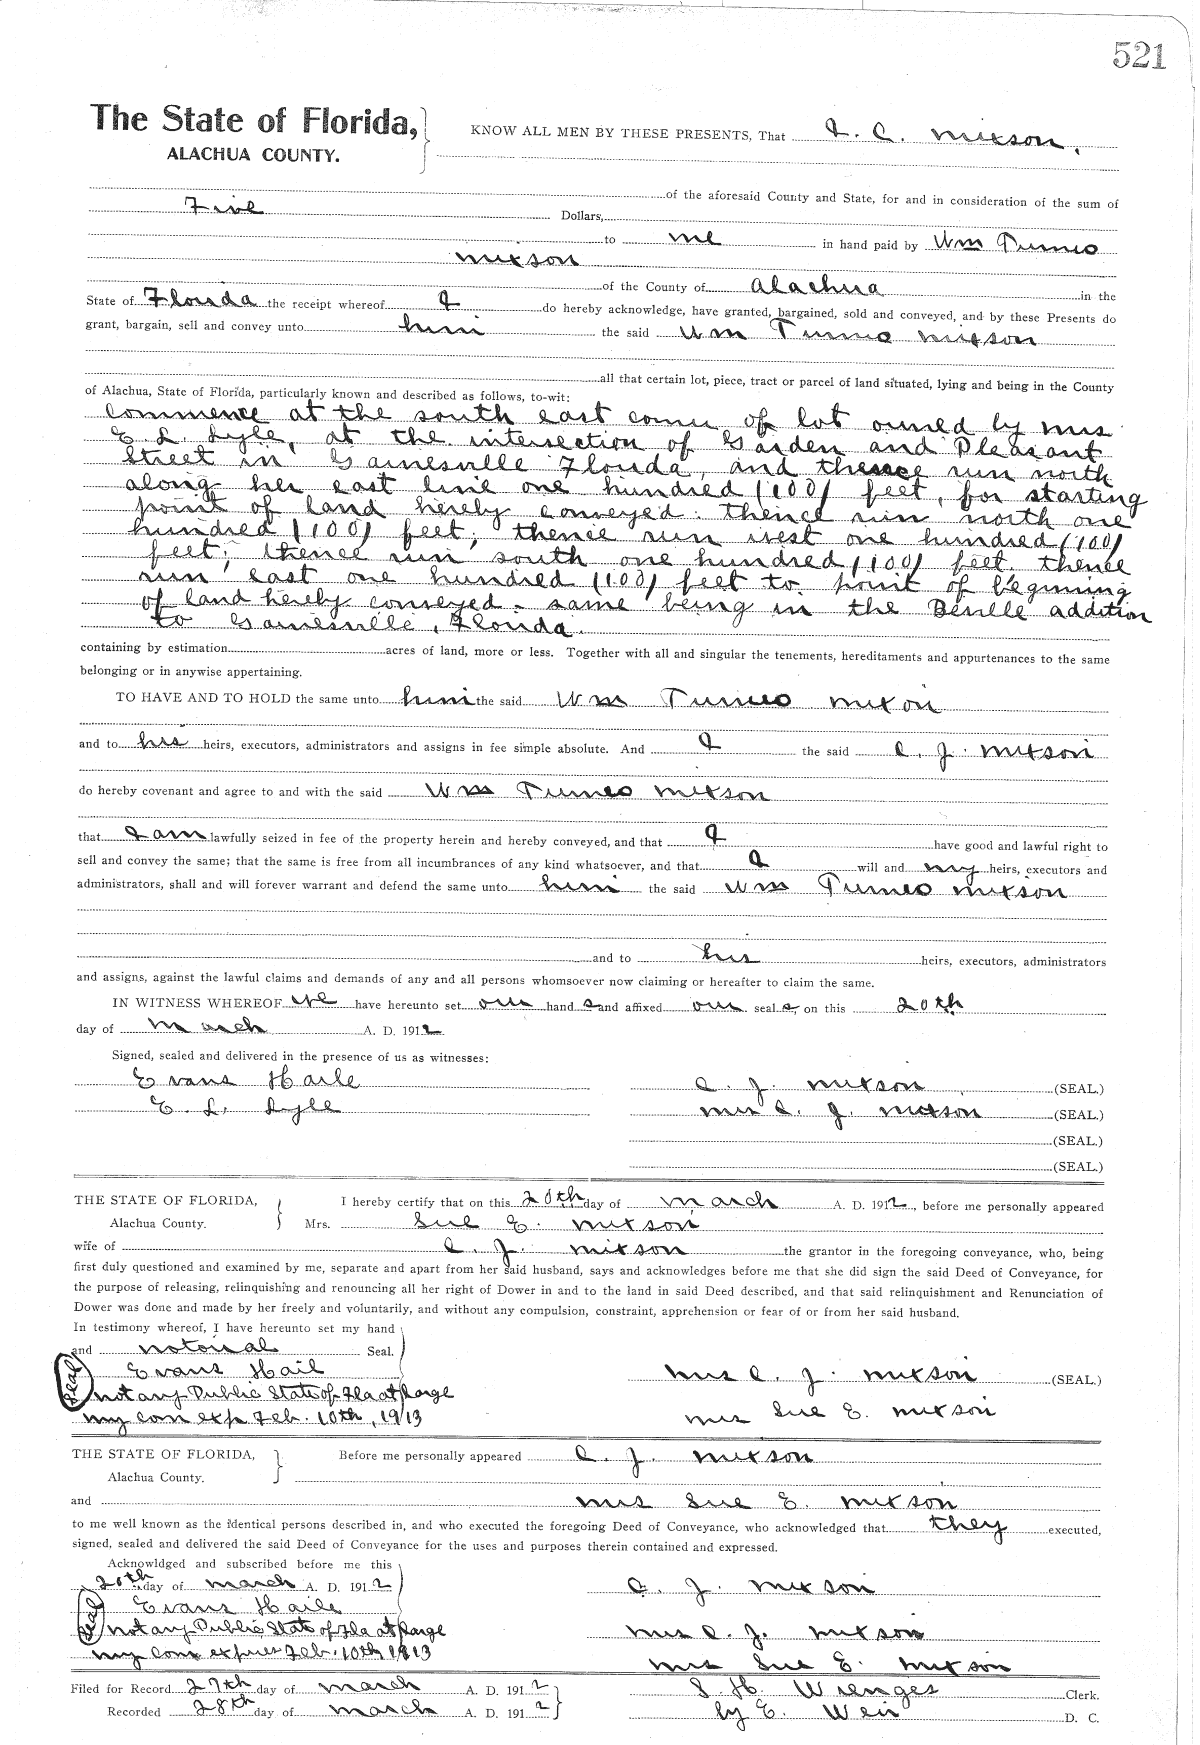 521
The State of Florida,
ALACHUA COUNTY.
KNOW ALL MEN BY THESE PRESENTS, That I. C. Mixson,
of the aforesaid County and State, for and in consideration of the sum of
Five Dollars,
to me in hand paid by Wm
Mixson
of the County of Alachua in the
State of Florida the receipt whereof I do hereby acknowledge, have granted, bargained, sold and conveyed, and by these Presents do
grant, bargain, sell and convey unto him the said Wm Mixson
all that certain lot, piece, tract or parcel of land situated, lying and being in the County
of Alachua, State of Florida, particularly known and described as follows, to-wit:
Commence at the south east corner of lot owned by Mrs
E. L. Lyle, at the intersection of Garden and Pleasant
Street in Gainesville Florida, and thence run north
along her east line one hundred (100) feet, for starting
point of land hereby conveyed. Thence run north one
hundred (100) feet; thence run west one hundred (100)
feet; thence run south one hundred (100) feet. thence
run east one hundred (100) feet to point of beginning
of land hereby conveyed. same being in the Beville addition
to Gainesville, Florida.
containing by estimation acres of land, more or less. Together with all and singular the tenements, hereditaments and appurtenances to the same
belonging or in anywise appertaining.
TO HAVE AND TO HOLD the same unto him the said Wm Mixon
and to his heirs, executors, administrators and assigns in fee simple absolute. And I the said C. J. Mixson
do hereby covenant and agree to and with the said Wm Mixson
that I am lawfully seized in fee of the property herein and hereby conveyed, and that I have good and lawful right to
sell and convey the same; that the same is free from all incumbrances of any kind whatsoever, and that I will and my heirs, executors and
administrators, shall and will forever warrant and defend the same unto him the said Wm Mixson
and to his heirs, executors, administrators
and assigns, against the lawful claims and demands of any and all persons whomsoever now claiming or hereafter to claim the same.
IN WITNESS WHEREOF we have hereunto set our hand s and affixed our seal s, on this 20th
day of March A. D. 1912
Signed, sealed and delivered in the presence of us as witnesses:
Evans Haile C. J. Mixson (SEAL.)
E. L. Lyle Mrs C. J. Mixson (SEAL.)
(SEAL.)
(SEAL.)
THE STATE OF FLORIDA, I hereby certify that on this 20th day of March A. D. 1912, before me personally appeared
Alachua County. Mrs. Sue E. Mixson
wife of C. J. Mixson the grantor in the foregoing conveyance, who, being
first duly questioned and examined by me, separate and apart from her said husband, says and acknowledges before me that she did sign the said Deed of Conveyance, for
the purpose of releasing, relinquishing and renouncing all her right of Dower in and to the land in said Deed described, and that said relinquishment and Renunciation of
Dower was done and made by her freely and voluntarily, and without any compulsion, constraint, apprehension or fear of or from her said husband.
In testimony whereof, I have hereunto set my hand
and notorial Seal.
Seal Evans Hail Mrs C. J. Mixson (SEAL.)
Notary Public State of Fla at large
My com exp Feb. 10th, 1913 Mrs Sue E. Mixson
THE STATE OF FLORIDA, Before me personally appeared C. J. Mixson
Alachua County.
and Mrs Sue E. Mixson
to me well known as the identical persons described in, and who executed the foregoing Deed of Conveyance, who acknowledged that they executed,
signed, sealed and delivered the said Deed of Conveyance for the uses and purposes therein contained and expressed.
Acknowldged and subscribed before me this
20th day of March A. D. 1912 C. J. Mixson
Seal Evans Haile
Notary Public State of Fla at large Mrs C. J. Mixson
My com expires Feb. 10th 1913
Mrs Sue E. Mixson
Filed for Record 27th day of March A. D. 1912 S. H. Wienges Clerk.
Recorded 28th day of March A. D. 1912 by E. Weir D. C.